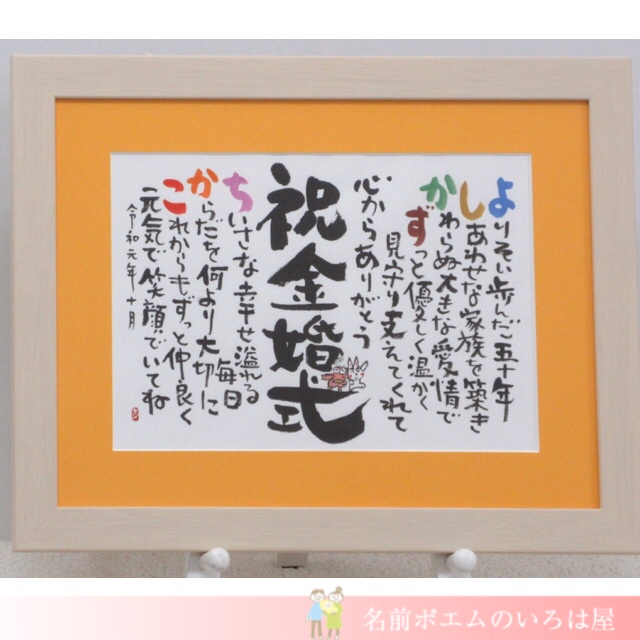 よりそい歩んだ五十年
しあわせな家族を築き
かわらぬ大きな愛情で
ずっと優しく温かく
見守り支えてくれて
心からありがとう
祝金婚式
ちいさな幸せ溢れる
毎日
からだを何より大切に
これからもずっと仲良く
元気で笑顔でいてね
令和元年十月
名前ポエムのいろは屋